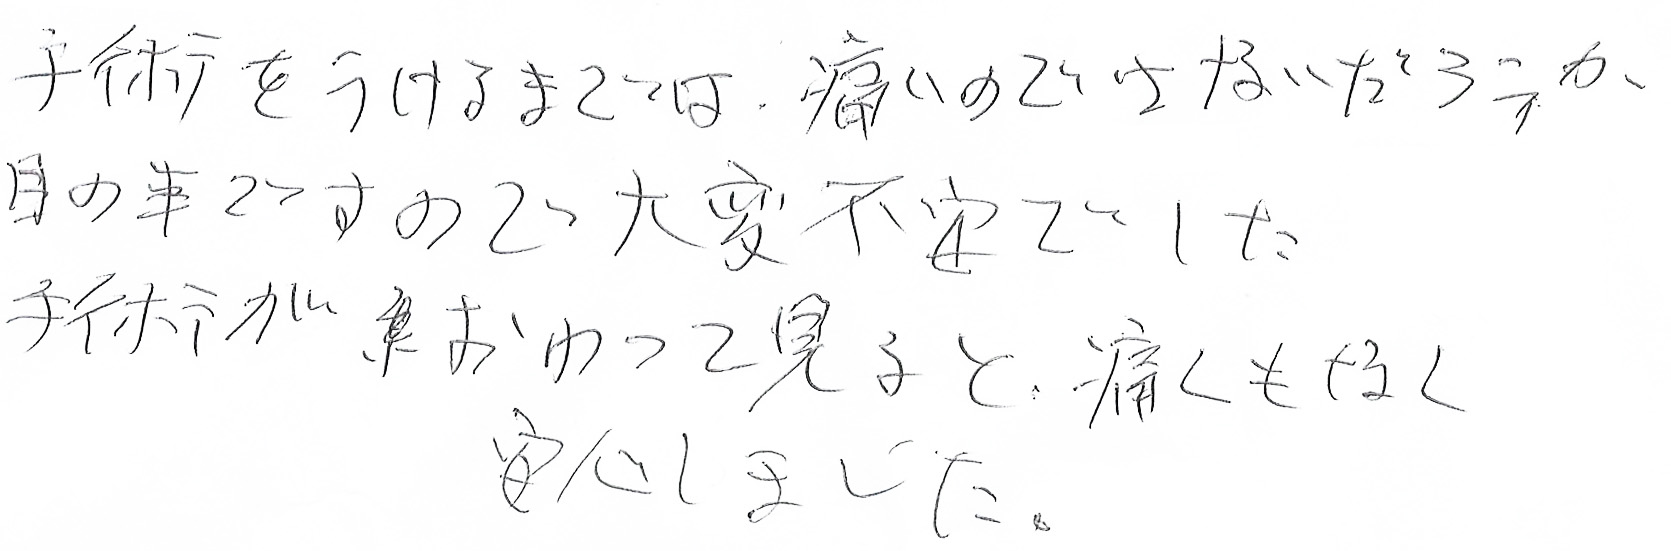 手術をうけるまでは、痛いのではないだろうか、
目の事ですので大変不安でした
手術がおわって見ると、痛くもなく
安心しました。